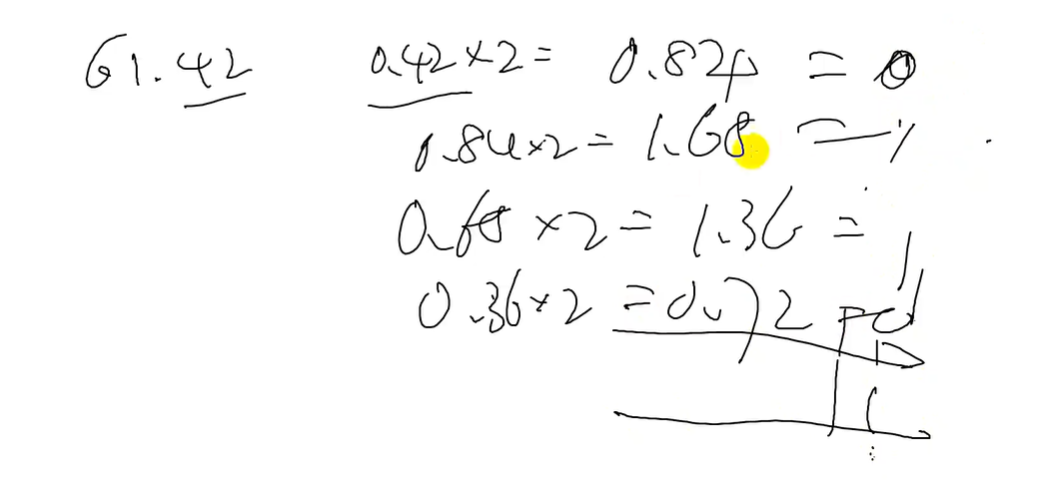 61.42 0.42×2= 0.824 = 0
0.84×2= 1.68 = 1
0.68 ×2= 1.36 = 1
0.36×2 =0.72